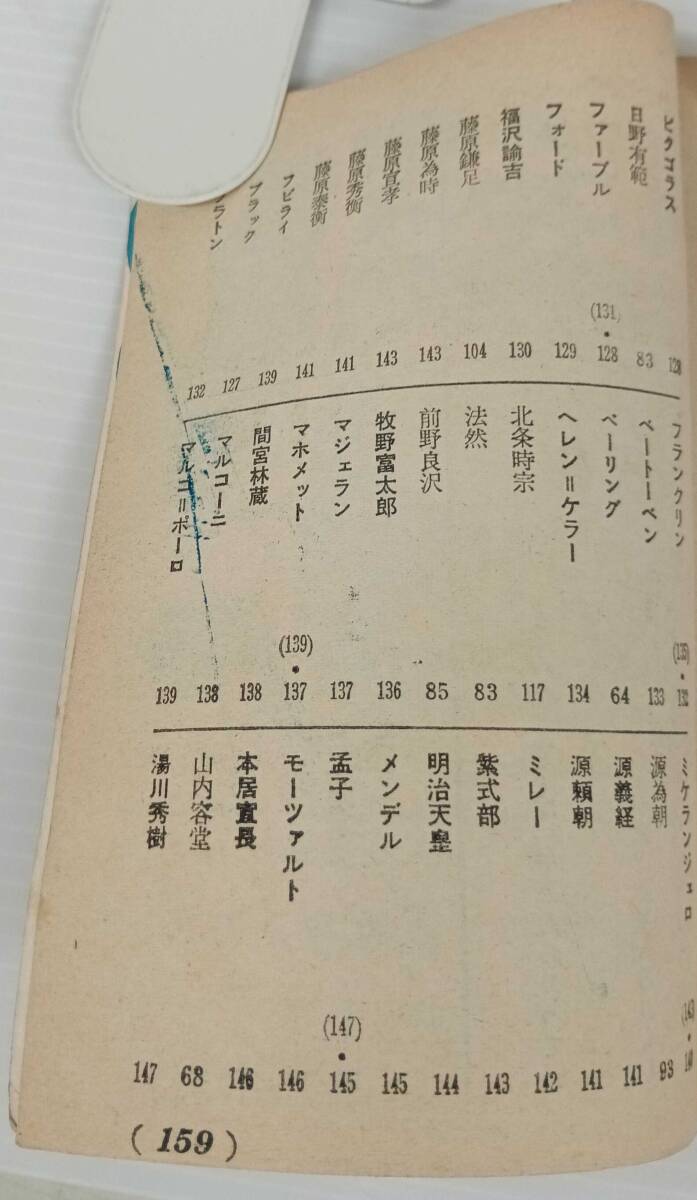 ピタゴラス 128
日野有範 83
ファーブル (131)・128
フォード 129
福沢諭吉 130
藤原鎌足 104
藤原為時 143
藤原宣孝 143
藤原秀衡 141
藤原泰衡 141
フビライ 139
ブラック 127
ラトン 132
フランクリン (135)・132
ベートーベン 133
ベーリング 64
ヘレン＝ケラー 134
北条時宗 117
法然 83
前野良沢 85
牧野富太郎 136
マジェラン 137
マホメット (139)・137
間宮林蔵 138
マルコーニ 138
マルコ＝ポーロ 139
ミケランジェロ (143)・140
源為朝 93
源義経 141
源頼朝 141
ミレー 142
紫式部 143
明治天皇 144
メンデル 145
孟子 (147)・145
モーツァルト 146
本居宣長 146
山内容堂 68
湯川秀樹 147
(159)